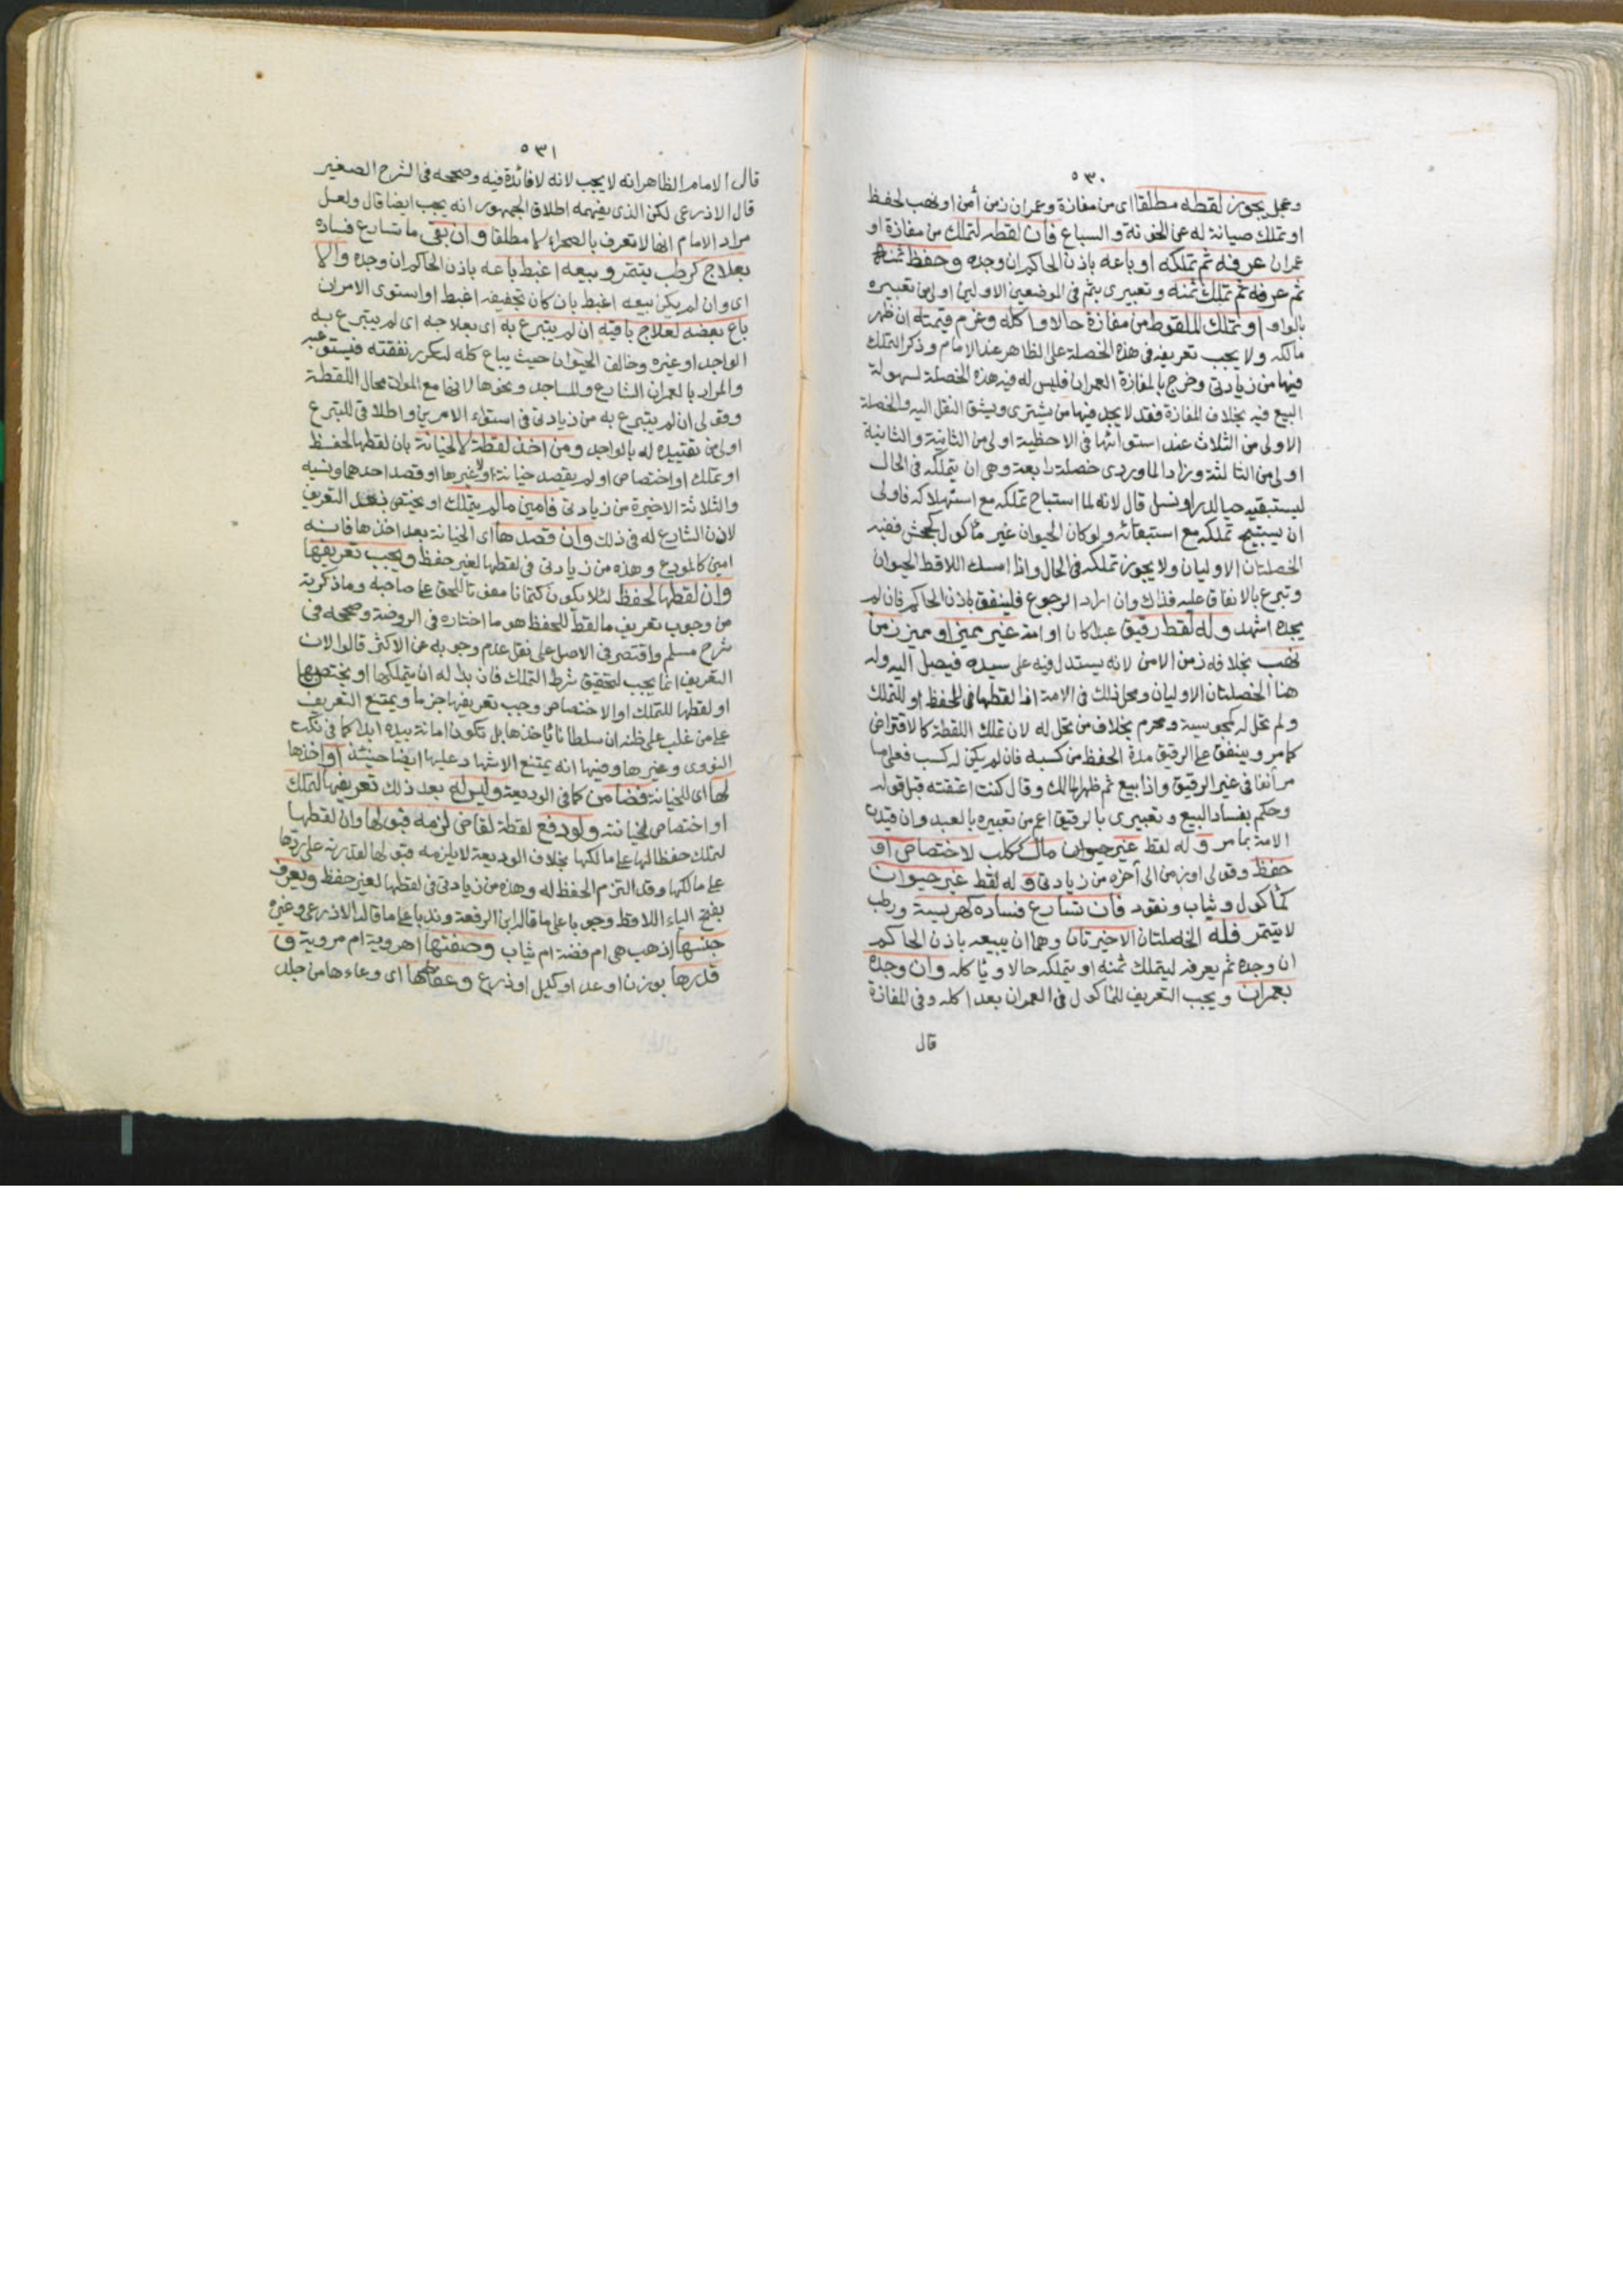 ٥٣٠
وعجل يجوز لقطه مطلقا اى من مفازة وعمران زمن أمن او نهب لحفظ
او تملك صيانة له عن الخونة والسباع فان لقطه لتملك من مفازة او
عمران عرفه ثم تملكه او باعه باذن الحاكم ان وجده وحفظ ثمنه
ثم عرفه ثم تملك ثمنه وتعبيرى بثم فى الموضعين الاولين اولى من تعبيره
بالواو او تملك الملقوط من مفازة حالا واكله وغرم قيمته ان ظهر
مالكه ولا يجب تعريفه فى هذه الخصلة على الظاهر عند الامام وذكر التملك
فيها من زيادتى وخرج بالمفازة العمران فليس له فيه هذه الخصلة لسهولة
البيع فيه بخلاف المفازة فقد لا يجد فيها من يشترى ويشق النقل اليه والخصلة
الاولى من الثلاث عند استوائها فى الاحظية اولى من الثانية والثانية
اولى من الثالثة وزاد الماوردى خصلة رابعة وهى ان يتملكه فى الحال
ليستبقيه حيا لدر او نسل قال لانه لما استباح تملكه مع استهلاكه فاولى
ان يستبيح تملكه مع استبقائه ولو كان الحيوان غير مأكول كجحش ففيه
الخصلتان الاوليان ولا يجوز تملكه فى الحال واذا امسك اللاقط الحيوان
وتبرع بالانفاق عليه فذاك وان اراد الرجوع فلينفق باذن الحاكم فان لم
يجده اشهد وله لقط رقيق عبدا كان او امة غير مميز او مميز زمن
نهب بخلافه زمن الامن لانه يستدل فيه على سيده فيصل اليه وله
هنا الخصلتان الاوليان ومحل ذلك فى الامة اذا لقطها للحفظ او للتملك
ولم تحل له كمجوسية ومحرم بخلاف من تحل له لان تملك اللقطة كالاقتراض
كما مر وينفق على الرقيق مدة الحفظ من كسبه فان لم يكن له كسب فعلى ما
مر آنفا فى غير الرقيق واذا بيع ثم ظهر المالك وقال كنت اعتقته قبل قوله
وحكم بفساد البيع وتعبيرى بالرقيق اعم من تعبيره بالعبد وان قيدت
الامة بما مر وله لقط غير حيوان مال ككلب لاختصاص او
حفظ وقولى او زمن الى أخره من زيادتى وله لقط غير حيوان
كمأكول وثياب ونقود فان تسارع فساده كهريسة ورطب
لا يتتمر فله الخصلتان الاخيرتان وهما ان يبيعه باذن الحاكم
ان وجده ثم يعرفه ليتملك ثمنه او يتملكه حالا وياكله وان وجده
بعمران ويجب التعريف للمأكول فى العمران بعد اكله وفى المفازة
قال
٥٣١
قال الامام الظاهر انه لا يجب لانه لا فائدة فيه وصححه فى الشرح الصغير
قال الاذرعى لكن الذى يفهمه اطلاق الجمهور انه يجب ايضا قال ولعل
مراد الامام انها لا تعرف بالصحراء لا مطلقا وان بقى ما تسارع فساده
بعلاج كرطب يتتمر وبيعه اغبط باعه باذن الحاكم ان وجده والا
اى وان لم يكن بيعه اغبط بان كان تجفيفه اغبط او استوى الامران
باع بعضه لعلاج باقيه ان لم يتبرع به اى بعلاجه اى لم يتبرع به
الواجد او غيره وخالف الحيوان حيث يباع كله لتكرر نفقته فيستوعبه
والمراد بالعمران الشارع والمساجد ونحوها لانها مع الموات محال اللقطة
وقولى ان لم يتبرع به من زيادتى فى استواء الامرين واطلاقى للتبرع
اولى من تقييده له بالواجد ومن اخذ لقطة لا لخيانة بان لقطها لحفظ
او تملك او اختصاص او لم يقصد خيانة ولا غيرها او قصد احدهما ونسيه
والثلاثة الاخيرة من زيادتى فامين ما لم يتملك او يختص بعد التعريف
لاذن الشارع له فى ذلك وان قصدها اى الخيانة بعد اخذها فانه
امين كالمودع وهذه من زيادتى فى لقطها لغير حفظ ويجب تعريفها
وان لقطها لحفظ لئلا يكون كتمانا مفوتا للحق على صاحبه وما ذكرته
من وجوب تعريف ما لقط للحفظ هو ما اختاره فى الروضة وصححه فى
شرح مسلم واقتصر فى الاصل على نقل عدم وجوبه عن الاكثر قالوا لان
التعريف انما يجب لتحقيق شرط التملك فان بدا له ان يتملكها او يختص بها
او لقطها للتملك او الاختصاص وجب تعريفها جزما ويمتنع التعريف
على من غلب على ظنه ان سلطانا يأخذها بل تكون امانة بيده ابدا كما فى نكت
النووى وغيرها وفيها انه يمتنع الاشهاد عليها ايضا حينئذ او اخذها
لها اى للخيانة فضامن كما فى الوديعة وليس له بعد ذلك تعريفها لتملك
او اختصاص لخيانته ولو دفع لقطة لقاض لزمه قبولها وان لقطها
لتملك حفظا لها على مالكها بخلاف الوديعة لا يلزمه قبولها لقدرته على ردها
على مالكها وقد التزم الحفظ له وهذه من زيادتى فى لقطها لغير حفظ ويعرف
بفتح الياء اللاقط وجوبا على ما قاله ابن الرفعة وندبا على ما قاله الاذرعى وغيره
جنسها اذهب هى ام فضة ام ثياب وصفتها اهروية ام مروية و
قدرها بوزن او عد او كيل او ذرع وعفاصها اى وعاءها من جلد